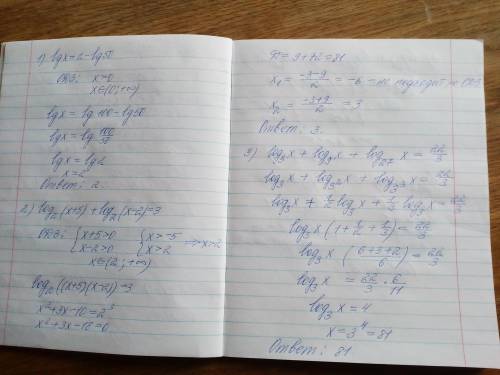 1) lgx = 2 - lg50
ОДЗ: x>0
x∈(0; +∞)
lgx = lg100 - lg50
lgx = lg 100/50
lgx = lg2
x = 2
Ответ: 2.
2) log₂(x+5) + log₂(x-2)=3
ОДЗ: {x+5>0 {x>-5
{x-2>0 {x>2 => x>2
x∈(2; +∞)
log₂((x+5)(x-2))=3
x²+3x-10=2³
x²+3x-18=0
Д = 9+72 = 81
x₁ = (-3-9)/2 = -6 - не подходит по ОДЗ
x₂ = (-3+9)/2 = 3
Ответ: 3.
3) log₃x + log₉x + log₂₇x = 22/3
log₃x + log₃²x + log₃³x = 22/3
log₃x + 1/2 log₃x + 1/3 log₃x = 22/3
log₃x (1 + 1/2 + 1/3) = 22/3
log₃x (6+3+2/6) = 22/3
log₃x = 22/3 · 6/11
log₃x = 4
x = 3⁴ = 81
Ответ: 81